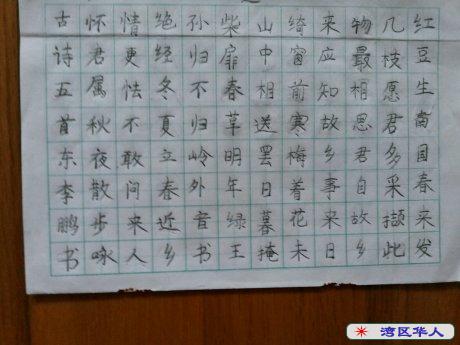 红豆生南国春来发
几枝愿君多采撷此
物最相思君自故乡
来应知故乡事来日
绮窗前寒梅着花未
山中相送罢日暮掩
柴扉春草明年绿王
孙归不归岭外音书
绝经冬夏立春近乡
情更怯不敢问来人
怀君属秋夜散步咏
古诗五首东李鹏书
湾区华人